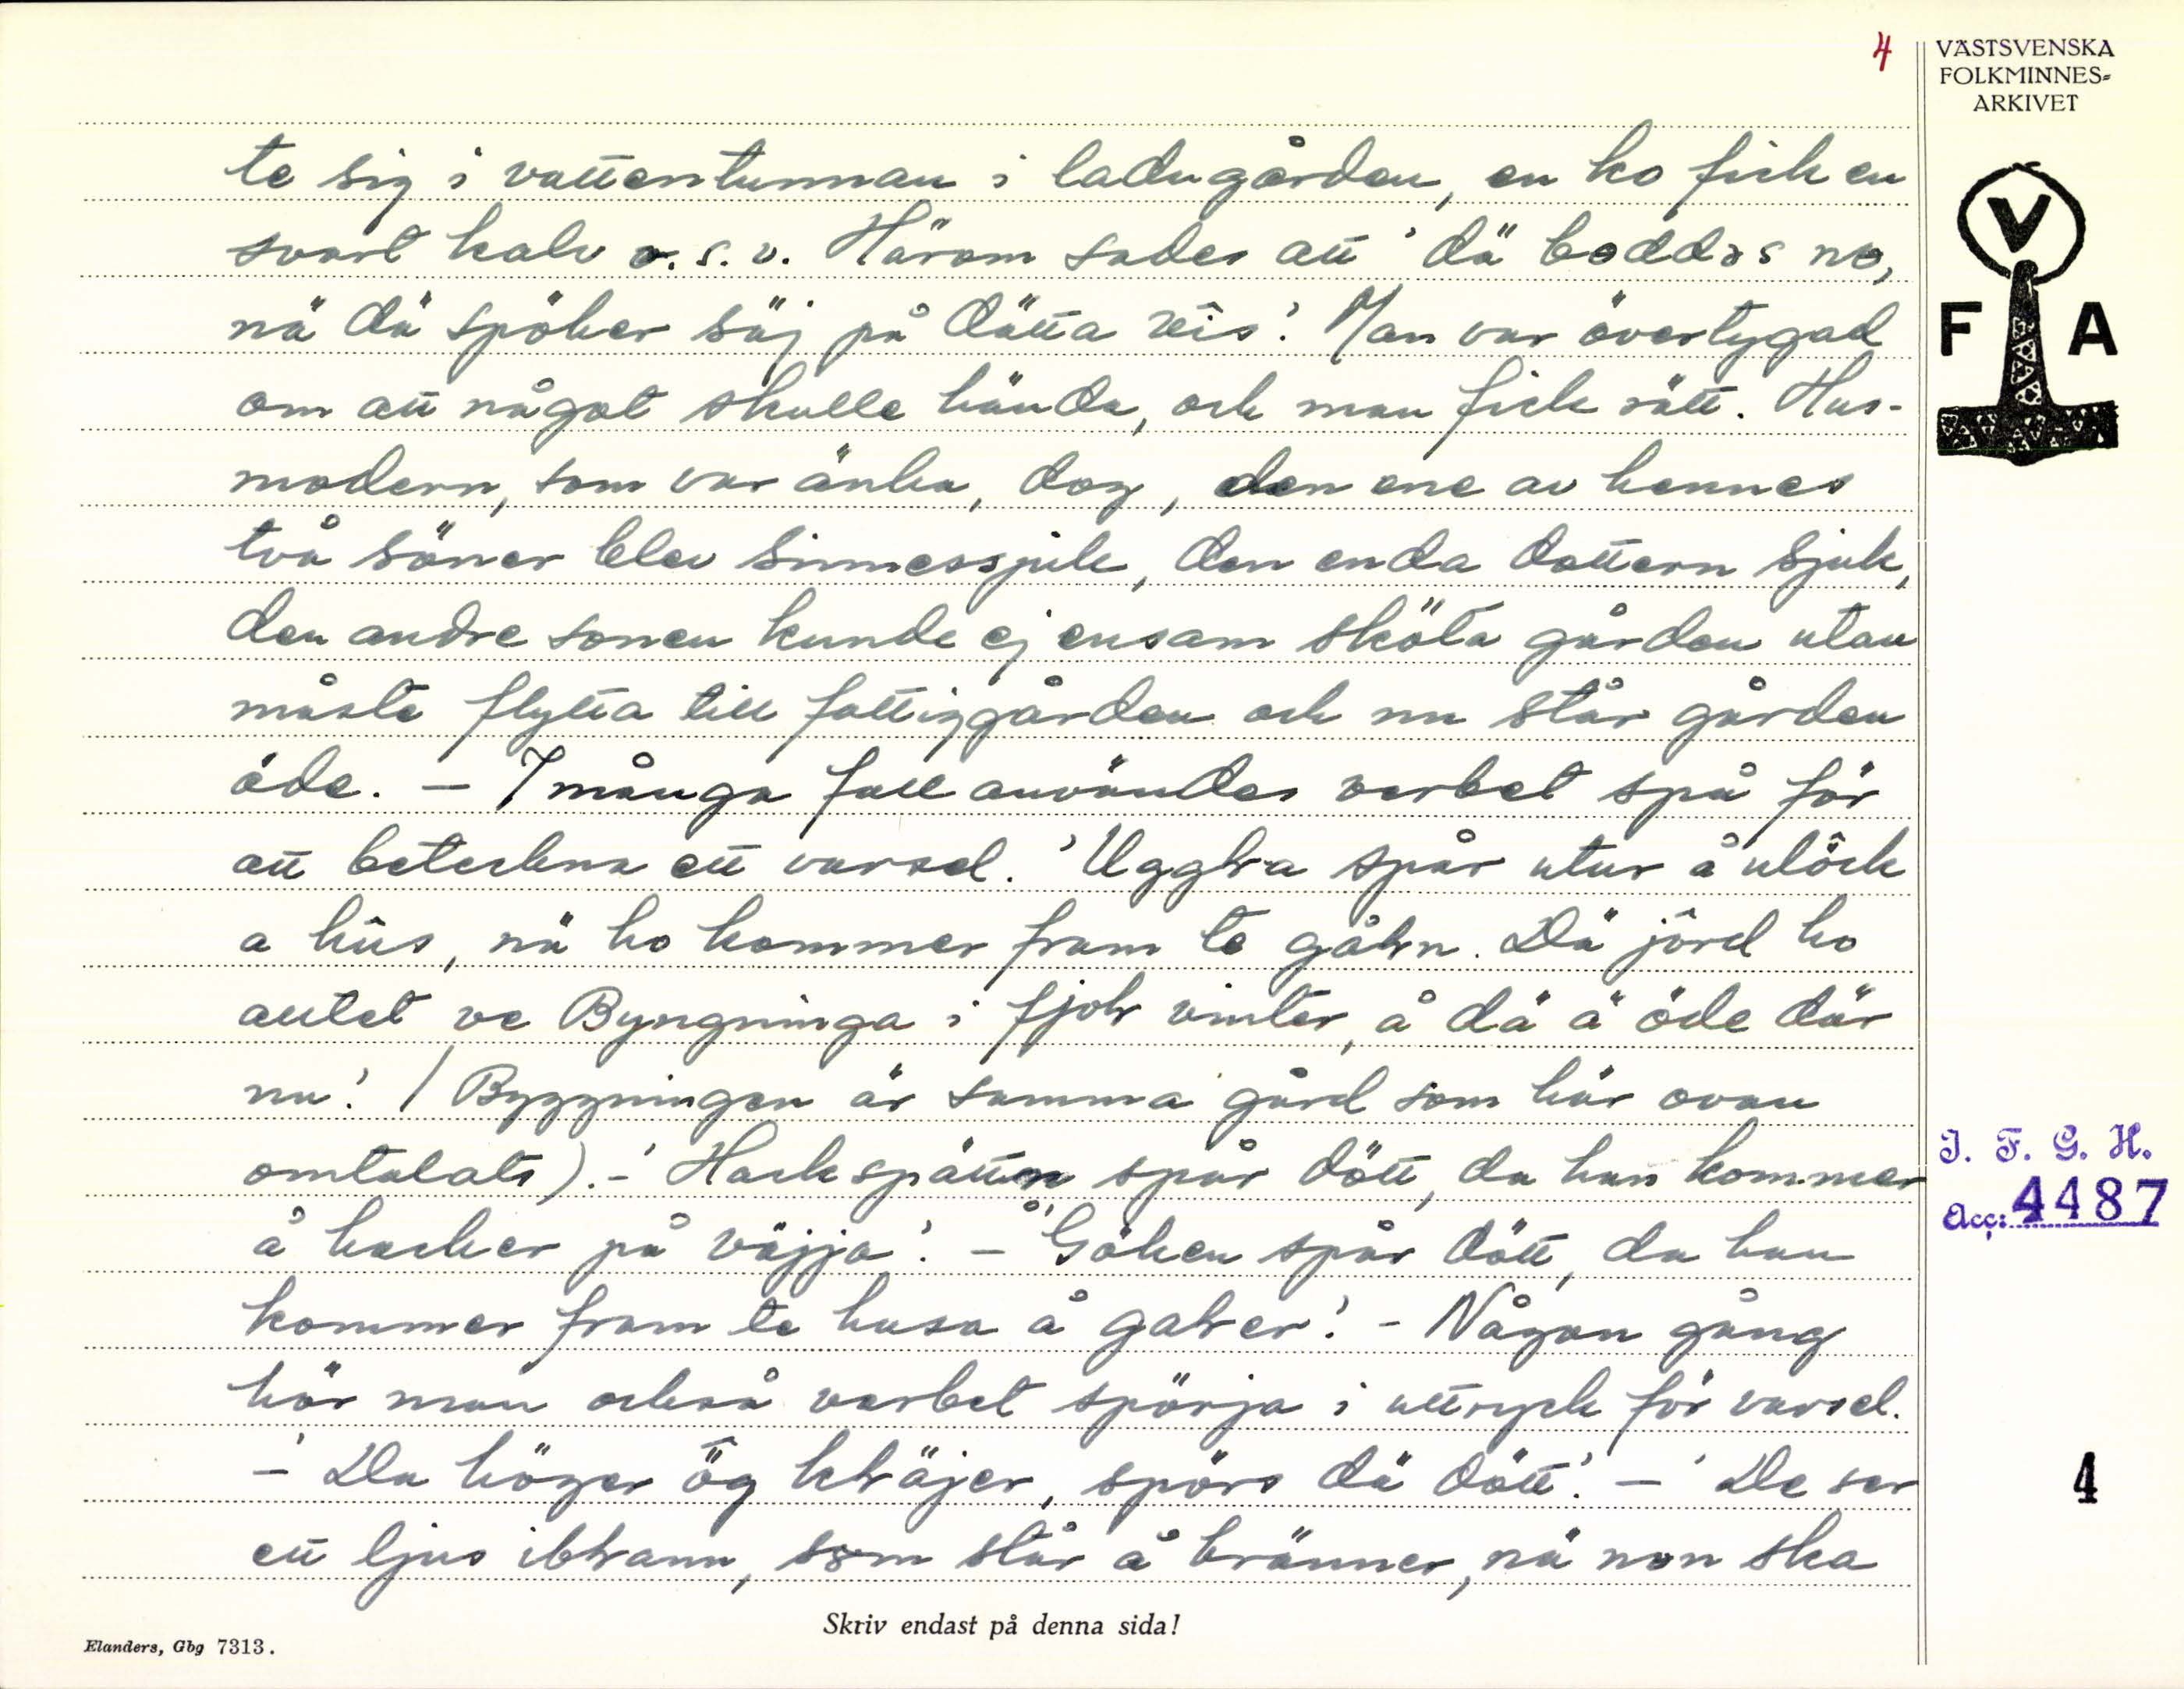 4
VÄSTSVENSKA
FOLKMINNES=
ARKIVET
V
F A
te sig i vattentunnan i ladugården, en ko fick en
svart kalv o.s.v. Härom sades att 'dä boddas no,
nä dä spöker säj på dätta vîs'. Man var övertygad
om att något skulle hända, och man fick rätt. Hus-
modern, som var änka, dog, den ene av hennes
två söner blev sinnessjuk, den enda dottern sjuk,
den andre sonen kunde ej ensam sköta gården utan
måste flytta till fattiggården och nu står gården
öde. – I många fall användes verbet spå för
att beteckna ett varsel. 'Uggla spår utur å ulöck
a hûs, nä ho kommer fram te gåhn. Dä jôrd ho
autet ve Byngninga i fjoh vinter, å dä ä öde där
nu'. (Byggningen är samma gård som här ovan
omtalats). – 'Hackspätten spår dött, da han kommer
å hacker på väjja'. – 'Göken spår dött, da han
kommer fram te husa å gaher'. – Någon gång
hör man också verbet spörja i uttryck för varsel.
– 'Da höger ög khäjer, spörs dä dött'. – 'De ser
ett ljus ibhann, som står å bränner, nä non ska
J. F. G. H.
Acc: 4487
4
Skriv endast på denna sida!
Elanders, Gbg 7313.